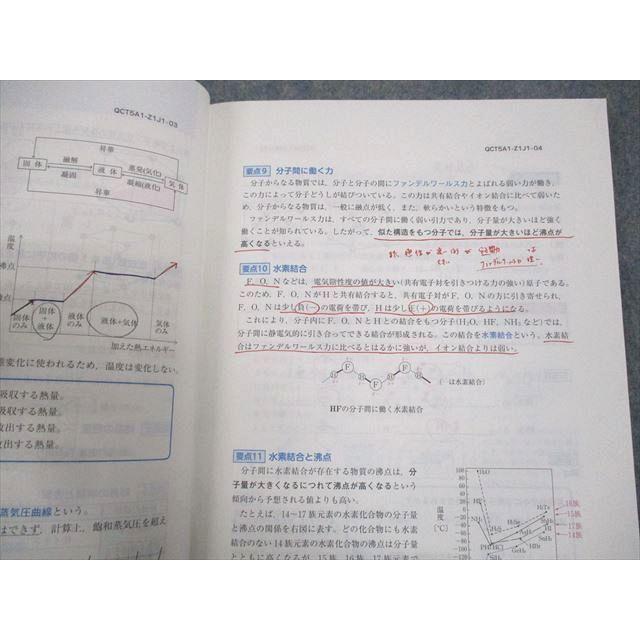 QCT5A1-Z1J1-03
昇華
融解
蒸発(気化)
固 体
液 体
気 体
凝固
凝縮(液化)
昇華
温
度
沸点
固体
のみ
固体
+
液体
液体
のみ
液体+気体
気体
のみ
加えた熱エネルギー
変化に使われるため，温度は変化しない。
吸収する熱量。
放出する熱量。
吸収する熱量。
放出する熱量。
蒸気圧曲線という。
はできず，計算上，飽和蒸気圧を超え
QCT5A1-Z1J1-04
要点9 分子間に働く力
分子からなる物質では，分子と分子の間にファンデルワールス力とよばれる弱い力が働き，
この力によって分子どうしが結びついている。この力は共有結合やイオン結合に比べて弱いた
め，分子からなる物質は，一般に融点が低く，また，軟らかいという特徴をもつ。
ファンデルワールス力は，すべての分子間に働く弱い引力であり，分子量が大きいほど強く
働くことが知られている。したがって，似た構造をもつ分子では，分子量が大きいほど沸点が
高くなるといえる。
要点10 水素結合
F，O，N などは，電気陰性度の値が大きい(共有電子対を引きつける力の強い)原子である。
このため，F，O，N が H と共有結合すると，共有電子対が F，O，N の方に引き寄せられ，
F，O，N は少し負(−)の電荷を帯び，H は少し正(+)の電荷を帯びるようになる。
これにより，分子内に F，O，N と H との結合をもつ分子(H₂O，HF，NH₃ など)では，
分子間に静電気的に引き合ってできる結合が形成される。この結合を水素結合という。水素結
合はファンデルワールス力に比べるとはるかに強いが，イオン結合よりは弱い。
H F H F H F H
(┄は水素結合)
HFの分子間に働く水素結合
要点11 水素結合と沸点
分子間に水素結合が存在する物質の沸点は，分
子量が大きくなるにつれて沸点が高くなるという
傾向から予想される値よりも高い。
たとえば，14〜17 族元素の水素化合物の分子量
と沸点の関係を右図に表す。どの化合物にも水素
結合のない 14 族元素の水素化合物の沸点は分子量
とともに高くなるが，15 族，16 族，17 族元素で
100
80
60
40
20
0
-20
-40
-60
-80
-100
-120
温
度
[℃]
H₂O
HF
NH₃
H₂S
H₂Se
H₂Te
SbH₃
HI
SnH₄
AsH₃
HBr
GeH₄
PH₃
HCl
16族
15族
17族
14族